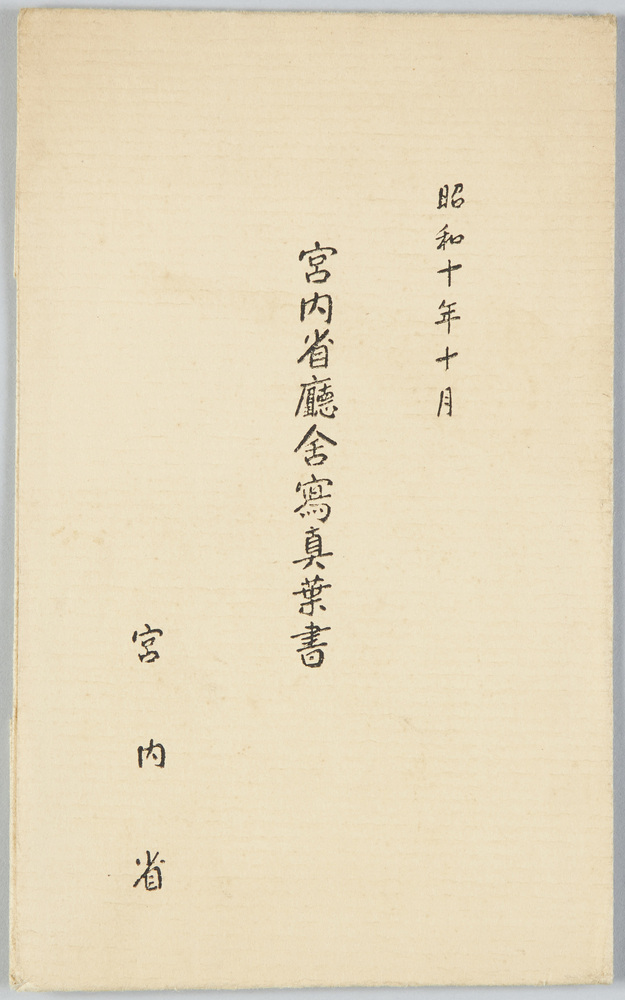 昭和十年十月
宮内省廳舍寫真葉書
宮内省